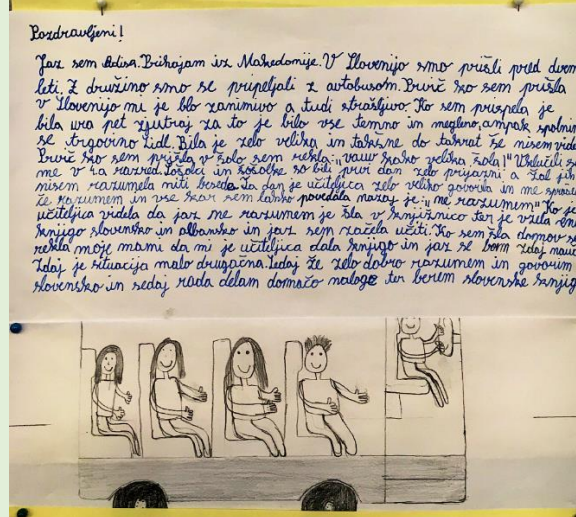 Pozdravljeni!
Jaz sem Adisa. Prihajam iz Makedonije. V Slovenijo smo prišli pred dvem
leti. Z družino smo se pripeljali z avtobusom. Prvič ko sem prišla
v Slovenijo mi je blo zanimivo a tudi strašljivo. Ko sem prispela je
bila ura pet zjutraj za to je bilo vse temno in megleno, ampak spolnim
se trgovino Lidl. Bila je zelo velika in takšne do takrat še nisem vide
Prvič ko sem prišla v šolo sem rekla: "vauw kako velika šola!" Vključili s
me v 4.a razred. Sošolci in sošolke so bili prvi dan zelo prijazni a žal jih
nisem razumela niti besede. Ta dan je učiteljica zelo veliko govorila in me spraš
če razumem in vse kar sem lahko povedala nazaj je: "ne razumem" Ko je
učiteljica vidla da jaz ne razumem je šla v knjižnico ter je vzela en
knjigo slovensko in albansko in jaz sem začela učiti. Ko sem šla domov s
rekla moje mami da mi je učiteljica dala knjigo in jaz se bom zdaj nauč
Zdaj je situacija malo drugačna. Sedaj že zelo dobro razumem in govorim
slovensko in sedaj rada delam domačo naloge ter berem slovenske knjig